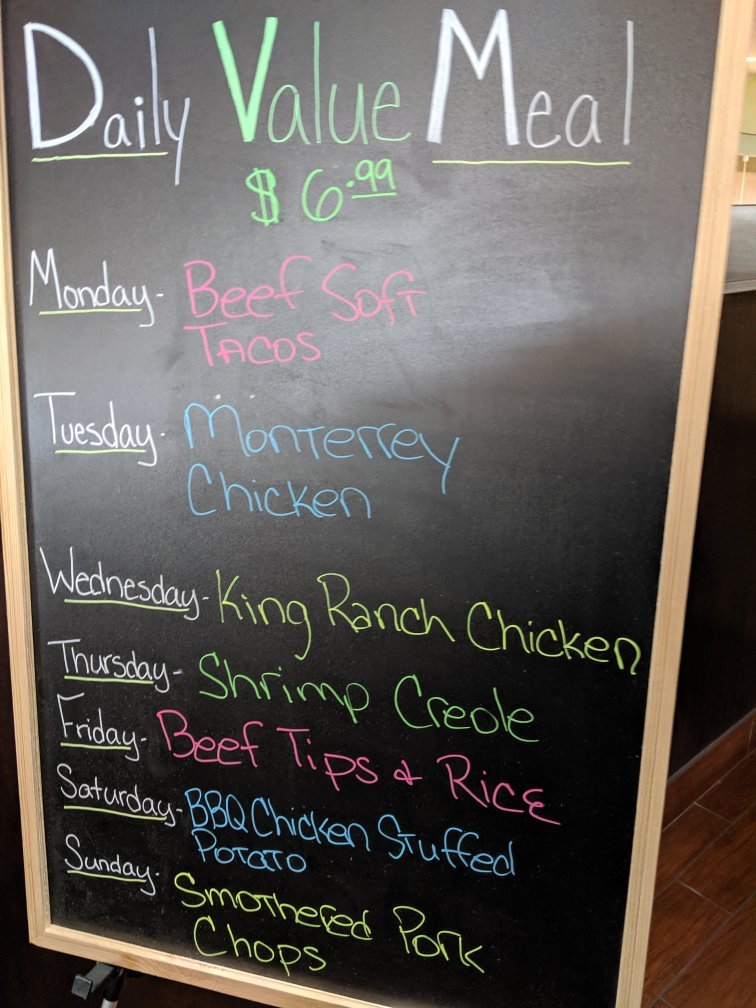 Daily Value Meal
$6.99
Monday- Beef Soft
Tacos
Tuesday- Monterrey
Chicken
Wednesday- King Ranch Chicken
Thursday- Shrimp Creole
Friday- Beef Tips & Rice
Saturday- BBQ Chicken Stuffed
Potato
Sunday- Smothered Pork
Chops